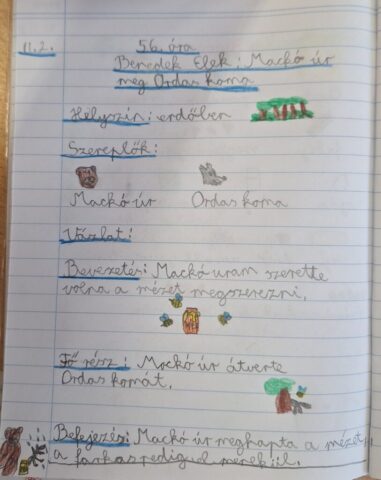 11.2. 56. óra
Benedek Elek: Mackó úr
meg Ordas koma
Helyszín: erdőben
Szereplők:
Mackó úr Ordas koma
Vázlat:
Bevezetés: Mackó uram szerette
volna a mézet megszerezni.
Fő rész: Mackó úr átverte
Ordas komát.
Befejezés: Mackó úr megkapta a mézet
a farkas pedig elmenekül.